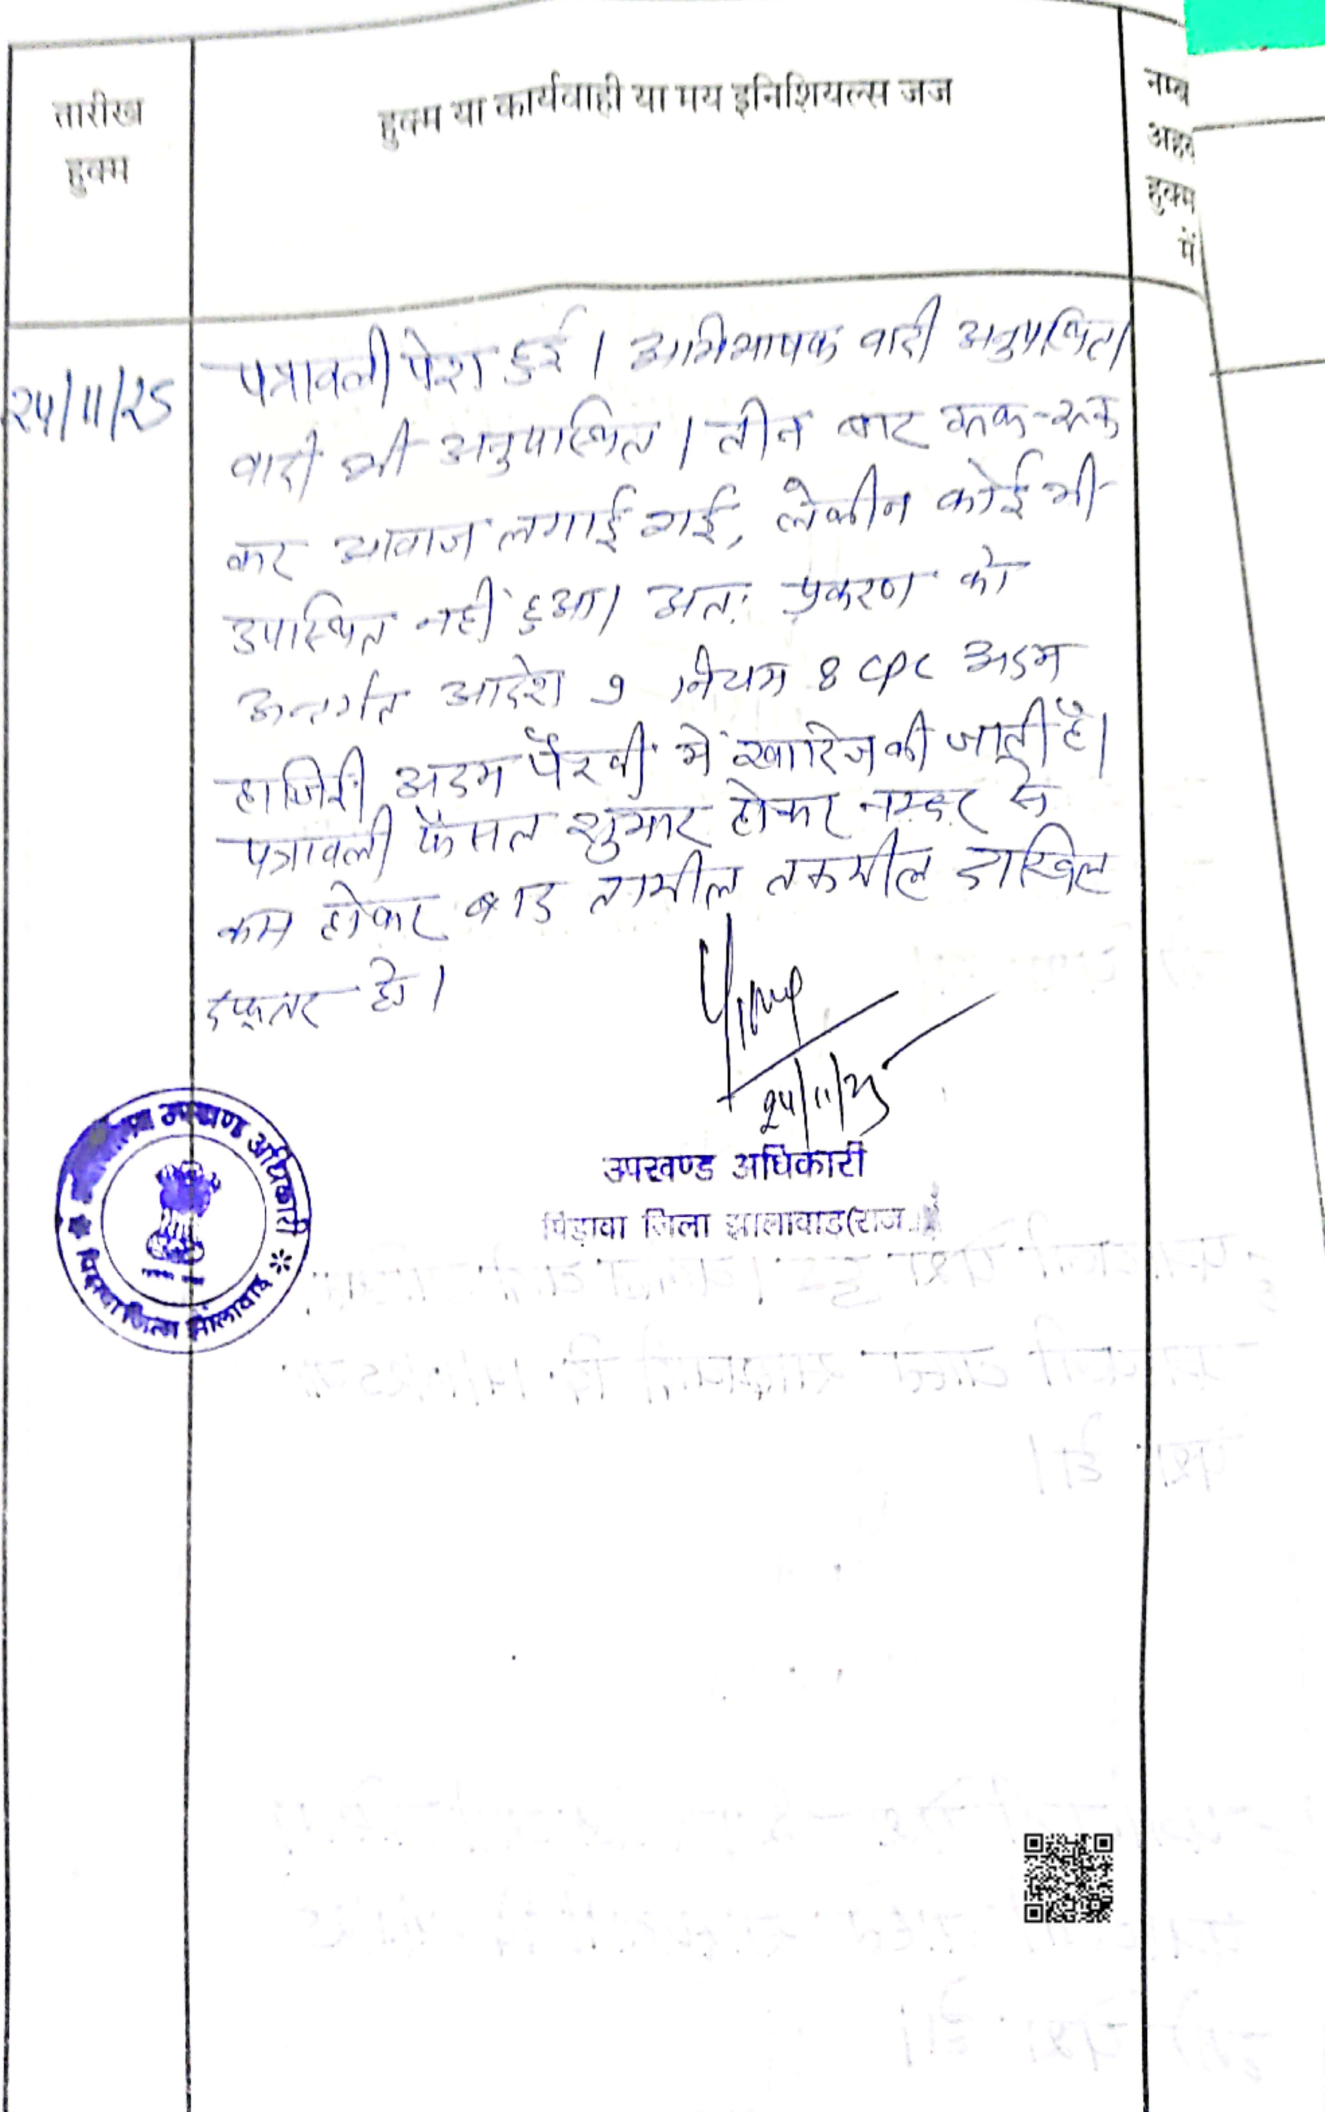 तारीख
हुक्म
हुक्म या कार्यवाही या मय इनिशियल्स जज
नम्ब
अहव
हुक्म
में
24/11/25
पत्रावली पेश हुई। अभिभाषक वादी अनुपस्थित।
वादी भी अनुपस्थित। तीन बार रूक-रूक
कर आवाज लगाई गई, लेकीन कोई भी
उपस्थित नहीं हुआ। अतः प्रकरण को
अन्तर्गत आदेश 9 नियम 8 CPC अदम
हाजिरी अदम पैरवी में खारिज की जाती है।
पत्रावली फैसल शुमार होकर नम्बर से
कम होकर बाद तामील तकमील दाखिल
दफ्तर हो।
24/11/25
उपखण्ड अधिकारी
पिड़ावा जिला झालावाड(राज.)
उपखण्ड अधिकारी
पिड़ावा जिला झालावाड़